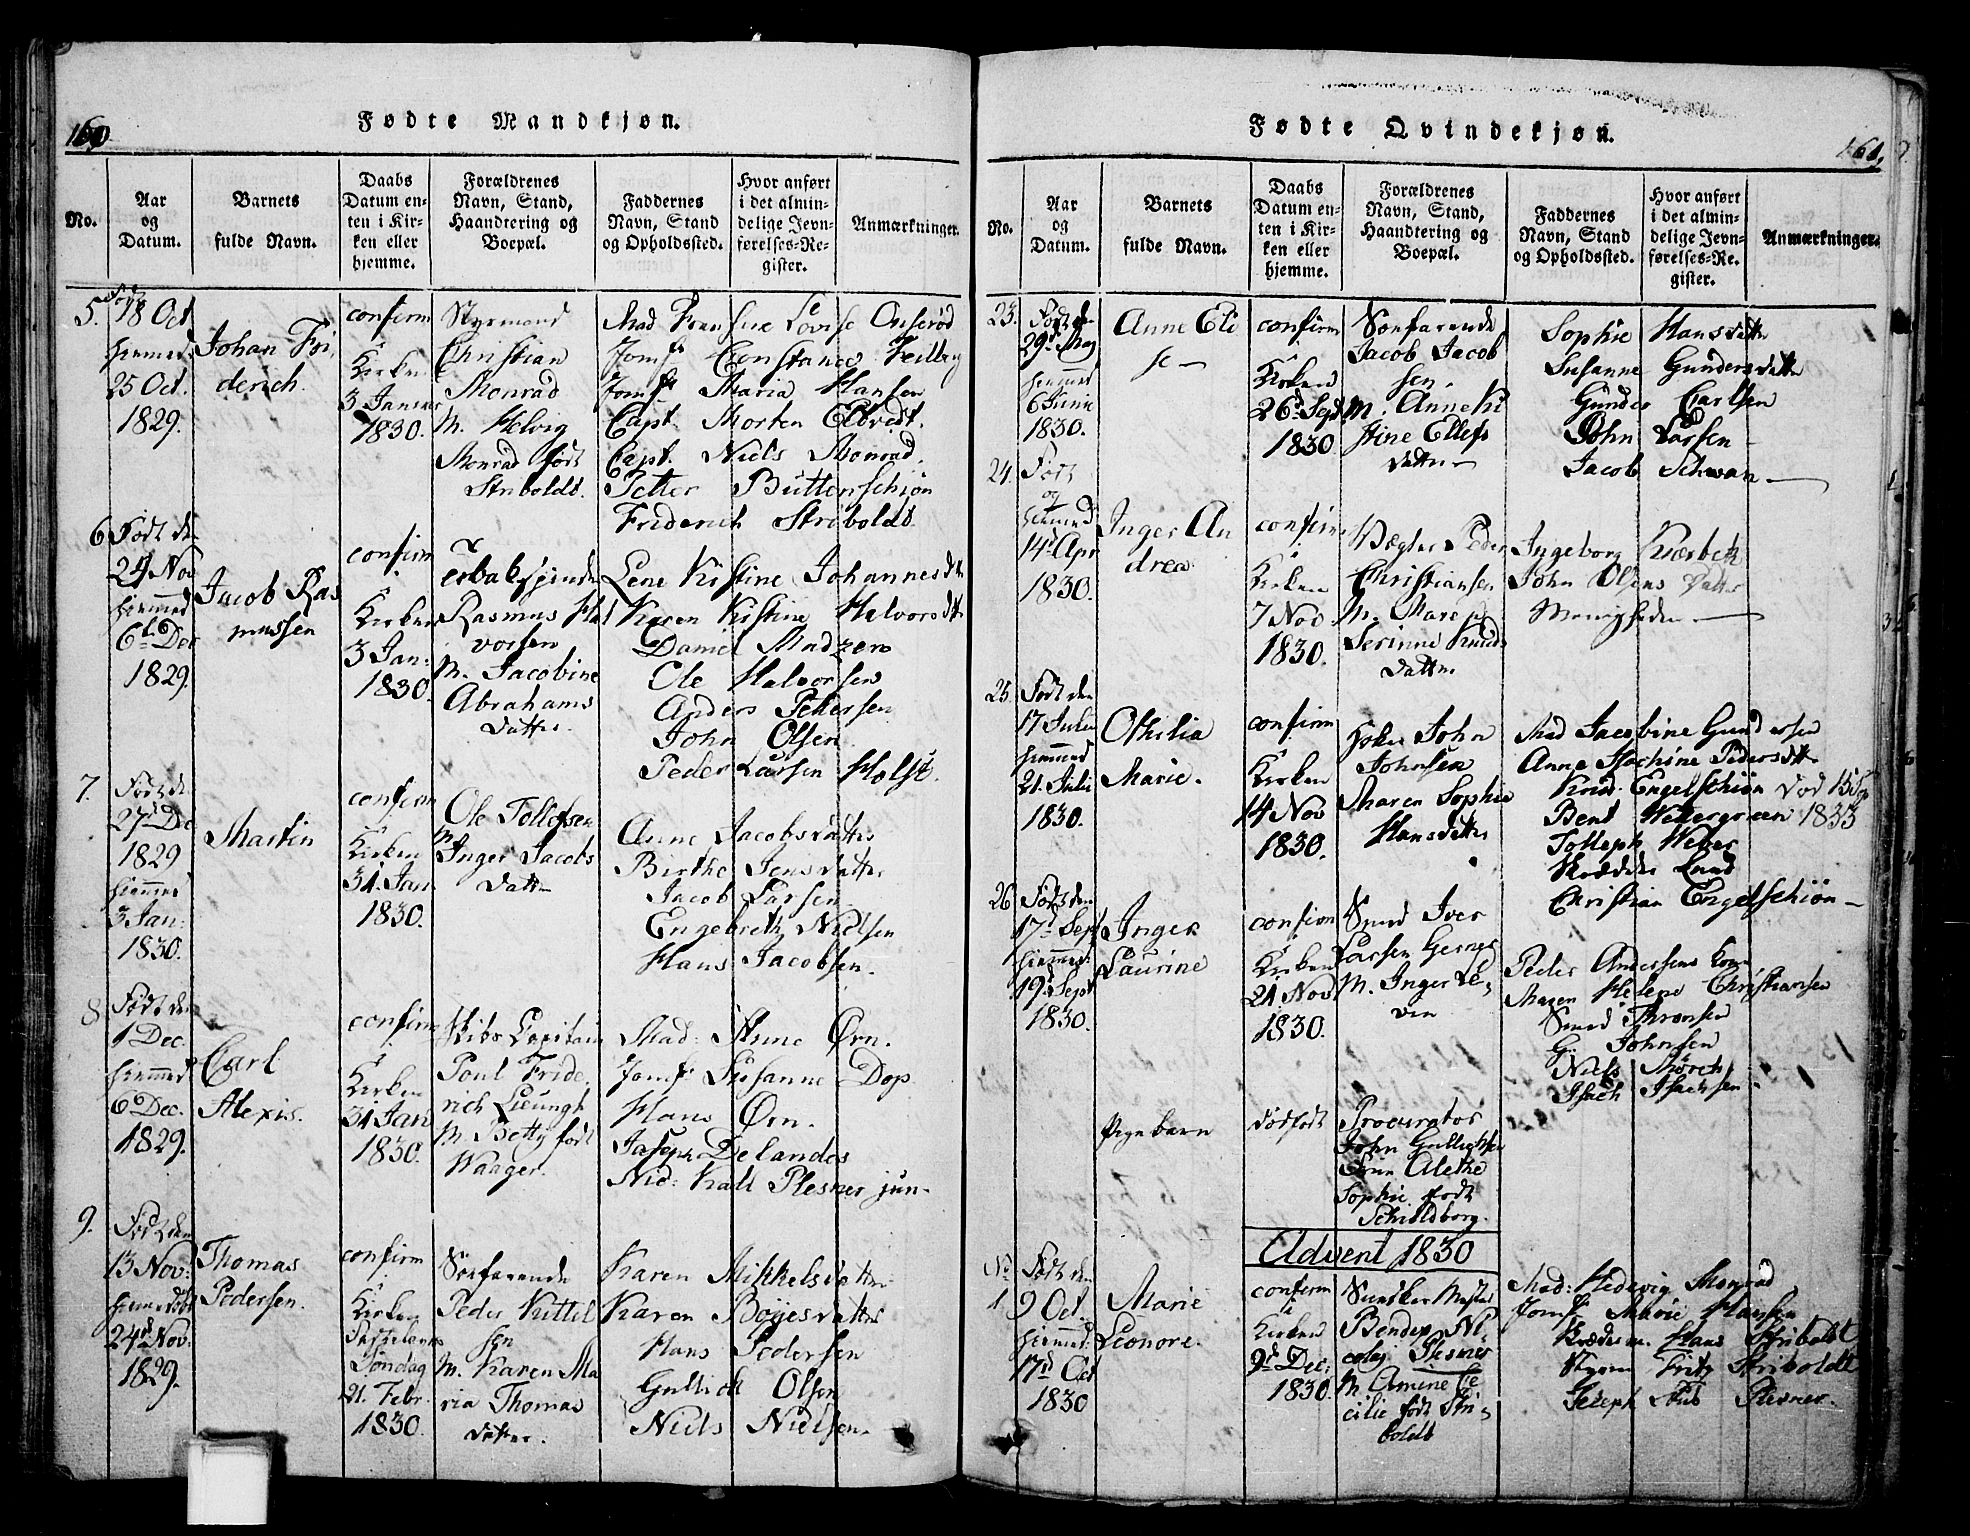 160
Fødte Mandkjøn.
No.
Aar
og
Datum.
Barnets
fulde Navn.
Daabs
Datum en-
ten i Kir-
ken eller
hjemme.
Forældrenes
Navn, Stand,
Haandtering og
Boepæl.
Faddernes
Navn, Stand
og Opholdssted.
Hvor anført
i det almin-
delige Jevn-
førelses-Re-
gister.
Anmærkninger.
5.
18 Oct
hjemmed
25 Oct.
1829.
Johan Fri
derich.
confirm
i
Kirken
3 Januar
1830.
Styrmand
Christian
Monrad
M. Helvig
Monrad født
Striboldt.
Mad Fransine Lovise Onserød
Jomf Constance
Jomf Maria Hansen
Capt. Morten Elvedt.
Capt. Niels Monrad.
Petter Buttenschiøn
Friderich Striboldt
6
Født den
24 Nov
hjemmed
6t Dec
1829.
Jacob Ras
mussen
confirm
i
Kirken
3 Jan:
1830
Rasmus Hal
vorsen
M. Jacobine
Abrahams
Datter.
Lene Kistine Johannesdtr
Karen Kistine Halvorsdtr
Daniel Madzen
Ole Halvorsen
Anders Pettersen
John Olsen
Peder Larsen Holst.
7.
Født d.
27d Dec
1829
hjemmed
3 Jan:
1830.
Martin
confirm
i
Kirken
31 Jan
1830.
Ole Tollefsen
M.
Inger Jacobs
Datter
Anne Jacobsdatter
Birthe Jensdatter
Jacob Larsen
Engebreth Nielsen
Hans Jacobsen.
8
Født den
1 Dec.
hjemmed
6 Dec.
1829.
Carl
Alexis.
confirm
i
Kirken
31 Jan
1830.
Skibs Capitain
Poul Fride
rich Lieungh
M. Betty født
Waager.
Mad: Stine Ørn.
Jomf: Susanne Dop
Hans Ørn.
Joseph Delandes
Nic: Kall Plesner jun.
9.
Født den
13 Nov:
hjemedøbt
24d Nov.
1829.
Thomas
Pedersen.
confirm
i
Kirken
Fastelavns
Søndag
21. Febr.
1830.
Søefarende
Peder Kittil
sen
M. Karen Ma
ria Thomas
datter.
Karen Mikkelsdatter
Karen Bøyesdatter
Hans Pedersen
Gullich Olsen
Niels Nielsen.
161
Fødte Qvindekjøn.
No.
Aar
og
Datum.
Barnets
fulde Navn.
Daabs
Datum en-
ten i Kir-
ken eller
hjemme.
Forældrenes
Navn, Stand,
Haandtering og
Boepæl.
Faddernes
Navn, Stand
og Opholdssted.
Hvor anført
i det almin-
delige Jevn-
førelses-Re-
gister.
Anmærkninger.
23.
Født den
29d May
hjemmed
6 Junie
1830.
Anne Eli
se
confirm
i
Kirken
26d Sept
1830
Søefarende
Jacob Jacob
sen.
M. Anne Ki
stine Ellefs
datter
Sophie Hansdatter
Susanne Gundersdatter
Gunder Carlsen
John Larsen
Jacob Schwan
24.
Født
og
hjemmed
14d Apr
1830.
Inger An
drea
confirm
i
Kirken
7 Nov
1830.
Vægter Peder
Christiansen
M. Maren
Serinne Knuds
datter
Ingeborg
John Olsens datter
Menigheden
25.
Født den
17 Julii
hjemmed
21. Julii
1830.
Othilia
Marie.
confirm
i
Kirken
14 Nov
1830.
John
Johnsen
Maren Sophie
Hansdatter
Mad Jacobine Gundersen
Anne Jochine Pedersdtr
Engelschiøn
Bent Wettergreen
Tolleph Weber
Skrædder Lund
Christian Engelschiøn
Død 15
1833
26
Født den
17d Sept
hjemmed:
19d Sept
1830.
Inger
Laurine
confirm
i
Kirken
21 Nov
1830.
Smed Iver
Larsen
M. Inger Le-
Peder Andersens kone
Maren Helene Christiansen
Smed Thronsen
G. Johnsen
Niels Mørch
Isach Isachsen
Pige barn
dødfødt
Procurator
John Gullichsen
Alethe
Sophie født
Schioldborg.
Advent 1830
No
1
Født den
9 Oct.
hjemmed:
17d Oct
1830
Marie
Leonore.
confirm
i
Kirken
9d Dec:
1830.
Bendix Ni-
colaj Plesner
M. Amine Ce
cilie født Stri-
boldt
Mad: Hedevig Monrad
Jomf Marie Hansen
Hans Striboldt
Styrm Fritz Striboldt
Joseph Plesner.